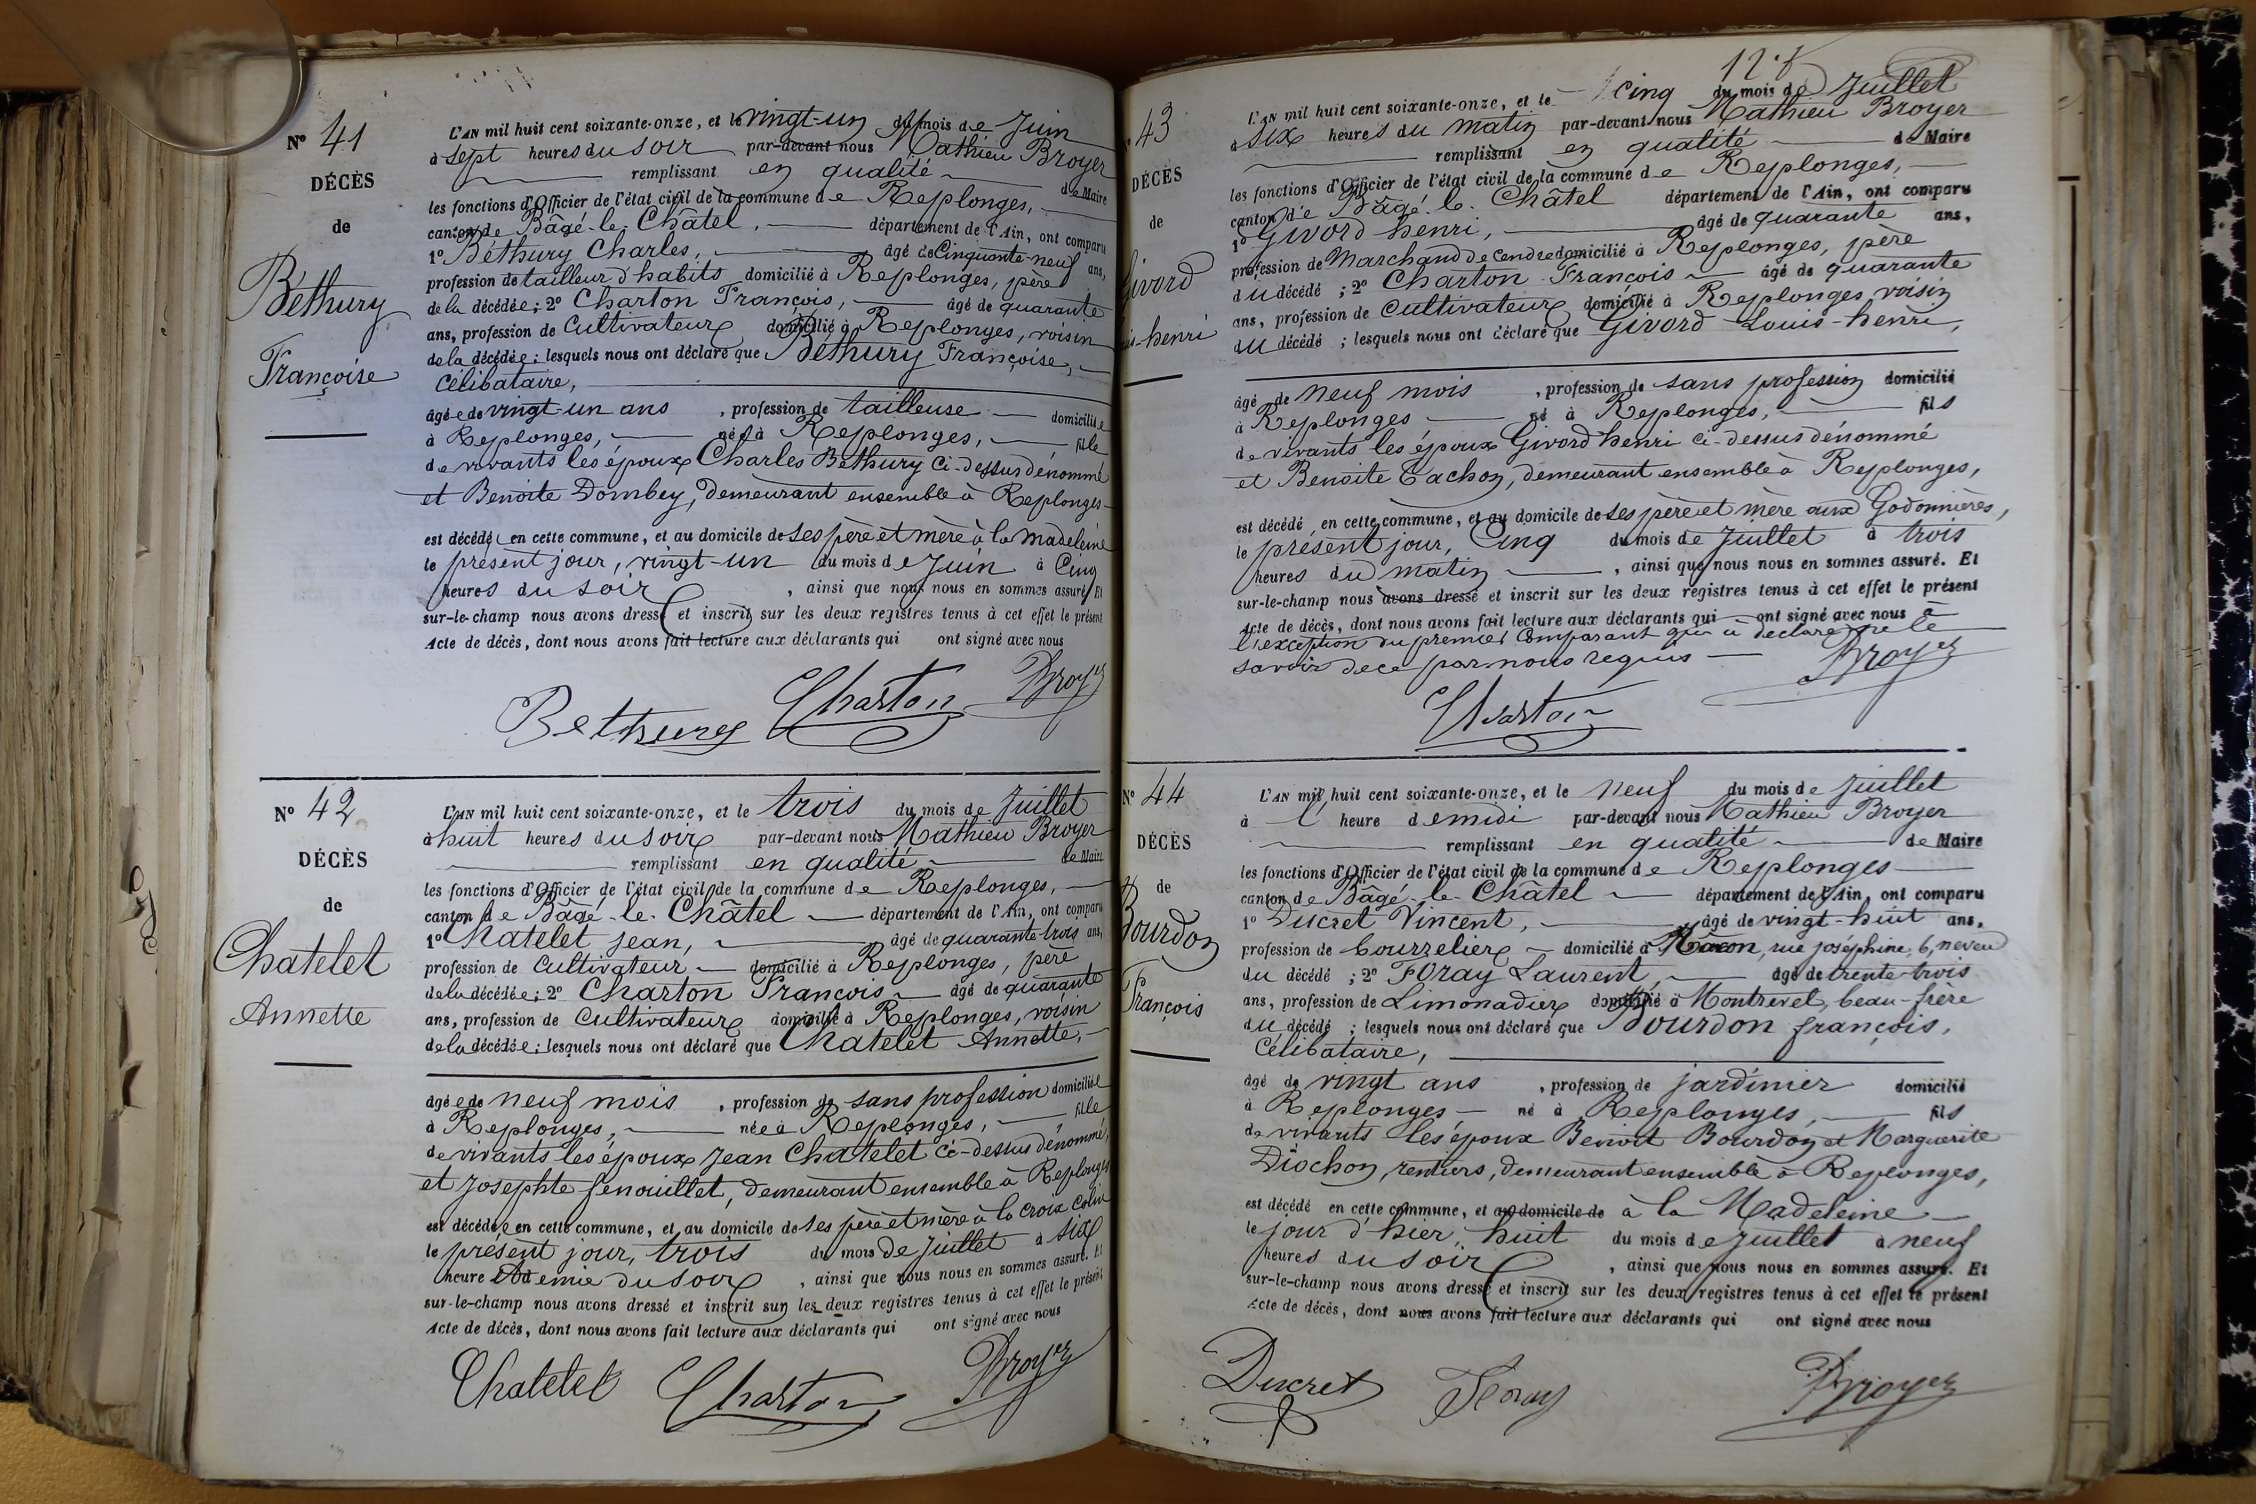 Nº 41
DÉCÈS
de
Béthury
Françoise
L'AN mil huit cent soixante-onze, et le vingt-un du mois de Juin
à sept heures du soir par-devant nous Mathieu Broyer
remplissant en qualité de Maire
les fonctions d'Officier de l'état civil de la commune de Replonges,
canton de Bâgé-le-Châtel, département de l'Ain, ont comparu
1º Béthury Charles, âgé de Cinquante-neuf ans,
profession de tailleur d'habits domicilié à Replonges, père
de la décédée; 2º Charton François, âgé de quarante
ans, profession de Cultivateur domicilié à Replonges, voisin
de la décédée; lesquels nous ont déclaré que Béthury Françoise,
Célibataire,
âgée de vingt-un ans, profession de tailleuse domiciliée
à Replonges, née à Replonges, fille
de vivants les époux Charles Béthury Ci-dessus dénommé
et Benoite Dombey, demeurant ensemble à Replonges
est décédée en cette commune, et au domicile de ses père et mère à la Madeleine
le présent jour, vingt-un du mois de Juin à Cinq
heures du soir, ainsi que nous nous en sommes assuré. Et
sur-le-champ nous avons dressé et inscrit sur les deux registres tenus à cet effet le présent
Acte de décès, dont nous avons fait lecture aux déclarants qui ont signé avec nous
Bethury Charton Broyer
Nº 42
DÉCÈS
de
Chatelet
Annette
L'AN mil huit cent soixante-onze, et le trois du mois de Juillet
à huit heures du soir par-devant nous Mathieu Broyer
remplissant en qualité de Maire
les fonctions d'Officier de l'état civil de la commune de Replonges,
canton de Bâgé-le-Châtel département de l'Ain, ont comparu
1º Chatelet Jean, âgé de quarante-trois ans,
profession de Cultivateur domicilié à Replonges, père
de la décédée; 2º Charton François âgé de quarante
ans, profession de Cultivateur domicilié à Replonges, voisin
de la décédée; lesquels nous ont déclaré que Chatelet Annette,
âgée de neuf mois, profession de sans profession domiciliée
à Replonges, née à Replonges, fille
de vivants les époux Jean Chatelet Ci-dessus dénommé,
et Josephte Fenouillet, demeurant ensemble à Replonges
est décédée en cette commune, et au domicile de ses père et mère à la Croix Colin
le présent jour, trois du mois de Juillet à six
heure et demie du soir, ainsi que nous nous en sommes assuré. Et
sur-le-champ nous avons dressé et inscrit sur les deux registres tenus à cet effet le présent
Acte de décès, dont nous avons fait lecture aux déclarants qui ont signé avec nous
Chatelet Charton Broyer
43
DÉCÈS
de
Givord
Louis-henri
L'AN mil huit cent soixante-onze, et le cinq du mois de Juillet
à six heures du matin par-devant nous Mathieu Broyer
remplissant en qualité de Maire
les fonctions d'Officier de l'état civil de la commune de Replonges,
canton de Bâgé-le-Châtel département de l'Ain, ont comparu
1º Givord henri, âgé de quarante ans,
profession de Marchand de Cendre domicilié à Replonges, père
du décédé; 2º Charton François âgé de quarante
ans, profession de Cultivateur domicilié à Replonges voisin
du décédé; lesquels nous ont déclaré que Givord Louis-henri,
âgé de neuf mois, profession de sans profession domicilié
à Replonges, né à Replonges, fils
de vivants les époux Givord henri Ci-dessus dénommé
et Benoite Tachon, demeurant ensemble à Replonges,
est décédé en cette commune, et au domicile de ses père et mère aux Godonnières,
le présent jour, Cinq du mois de Juillet à trois
heures du matin, ainsi que nous nous en sommes assuré. Et
sur-le-champ nous avons dressé et inscrit sur les deux registres tenus à cet effet le présent
Acte de décès, dont nous avons fait lecture aux déclarants qui ont signé avec nous à
l'exception du premier Comparant qui a déclaré ne le
savoir de ce par nous requis Broyer
Charton
Nº 44
DÉCÈS
de
Bourdon
François
L'AN mil huit cent soixante-onze, et le neuf du mois de Juillet
à l' heure de midi par-devant nous Mathieu Broyer
remplissant en qualité de Maire
les fonctions d'Officier de l'état civil de la commune de Replonges
canton de Bâgé-le-Châtel département de l'Ain, ont comparu
1º Ducret Vincent, âgé de vingt-huit ans,
profession de bourrelier domicilié à Mâcon, rue joséphine, 6, neveu
du décédé; 2º Foray Laurent, âgé de trente-trois
ans, profession de Limonadier domicilié à Montrevel, beau-frère
du décédé; lesquels nous ont déclaré que Bourdon françois,
Célibataire,
âgé de vingt ans, profession de jardinier domicilié
à Replonges né à Replonges, fils
de vivants les époux Benoit Bourdon et Marguerite
Diochon, rentiers, demeurant ensemble à Replonges,
est décédé en cette commune, et au domicile de à la Madeleine
le jour d'hier, huit du mois de Juillet à neuf
heures du soir, ainsi que nous nous en sommes assuré. Et
sur-le-champ nous avons dressé et inscrit sur les deux registres tenus à cet effet le présent
Acte de décès, dont nous avons fait lecture aux déclarants qui ont signé avec nous
Ducret Foray Broyer